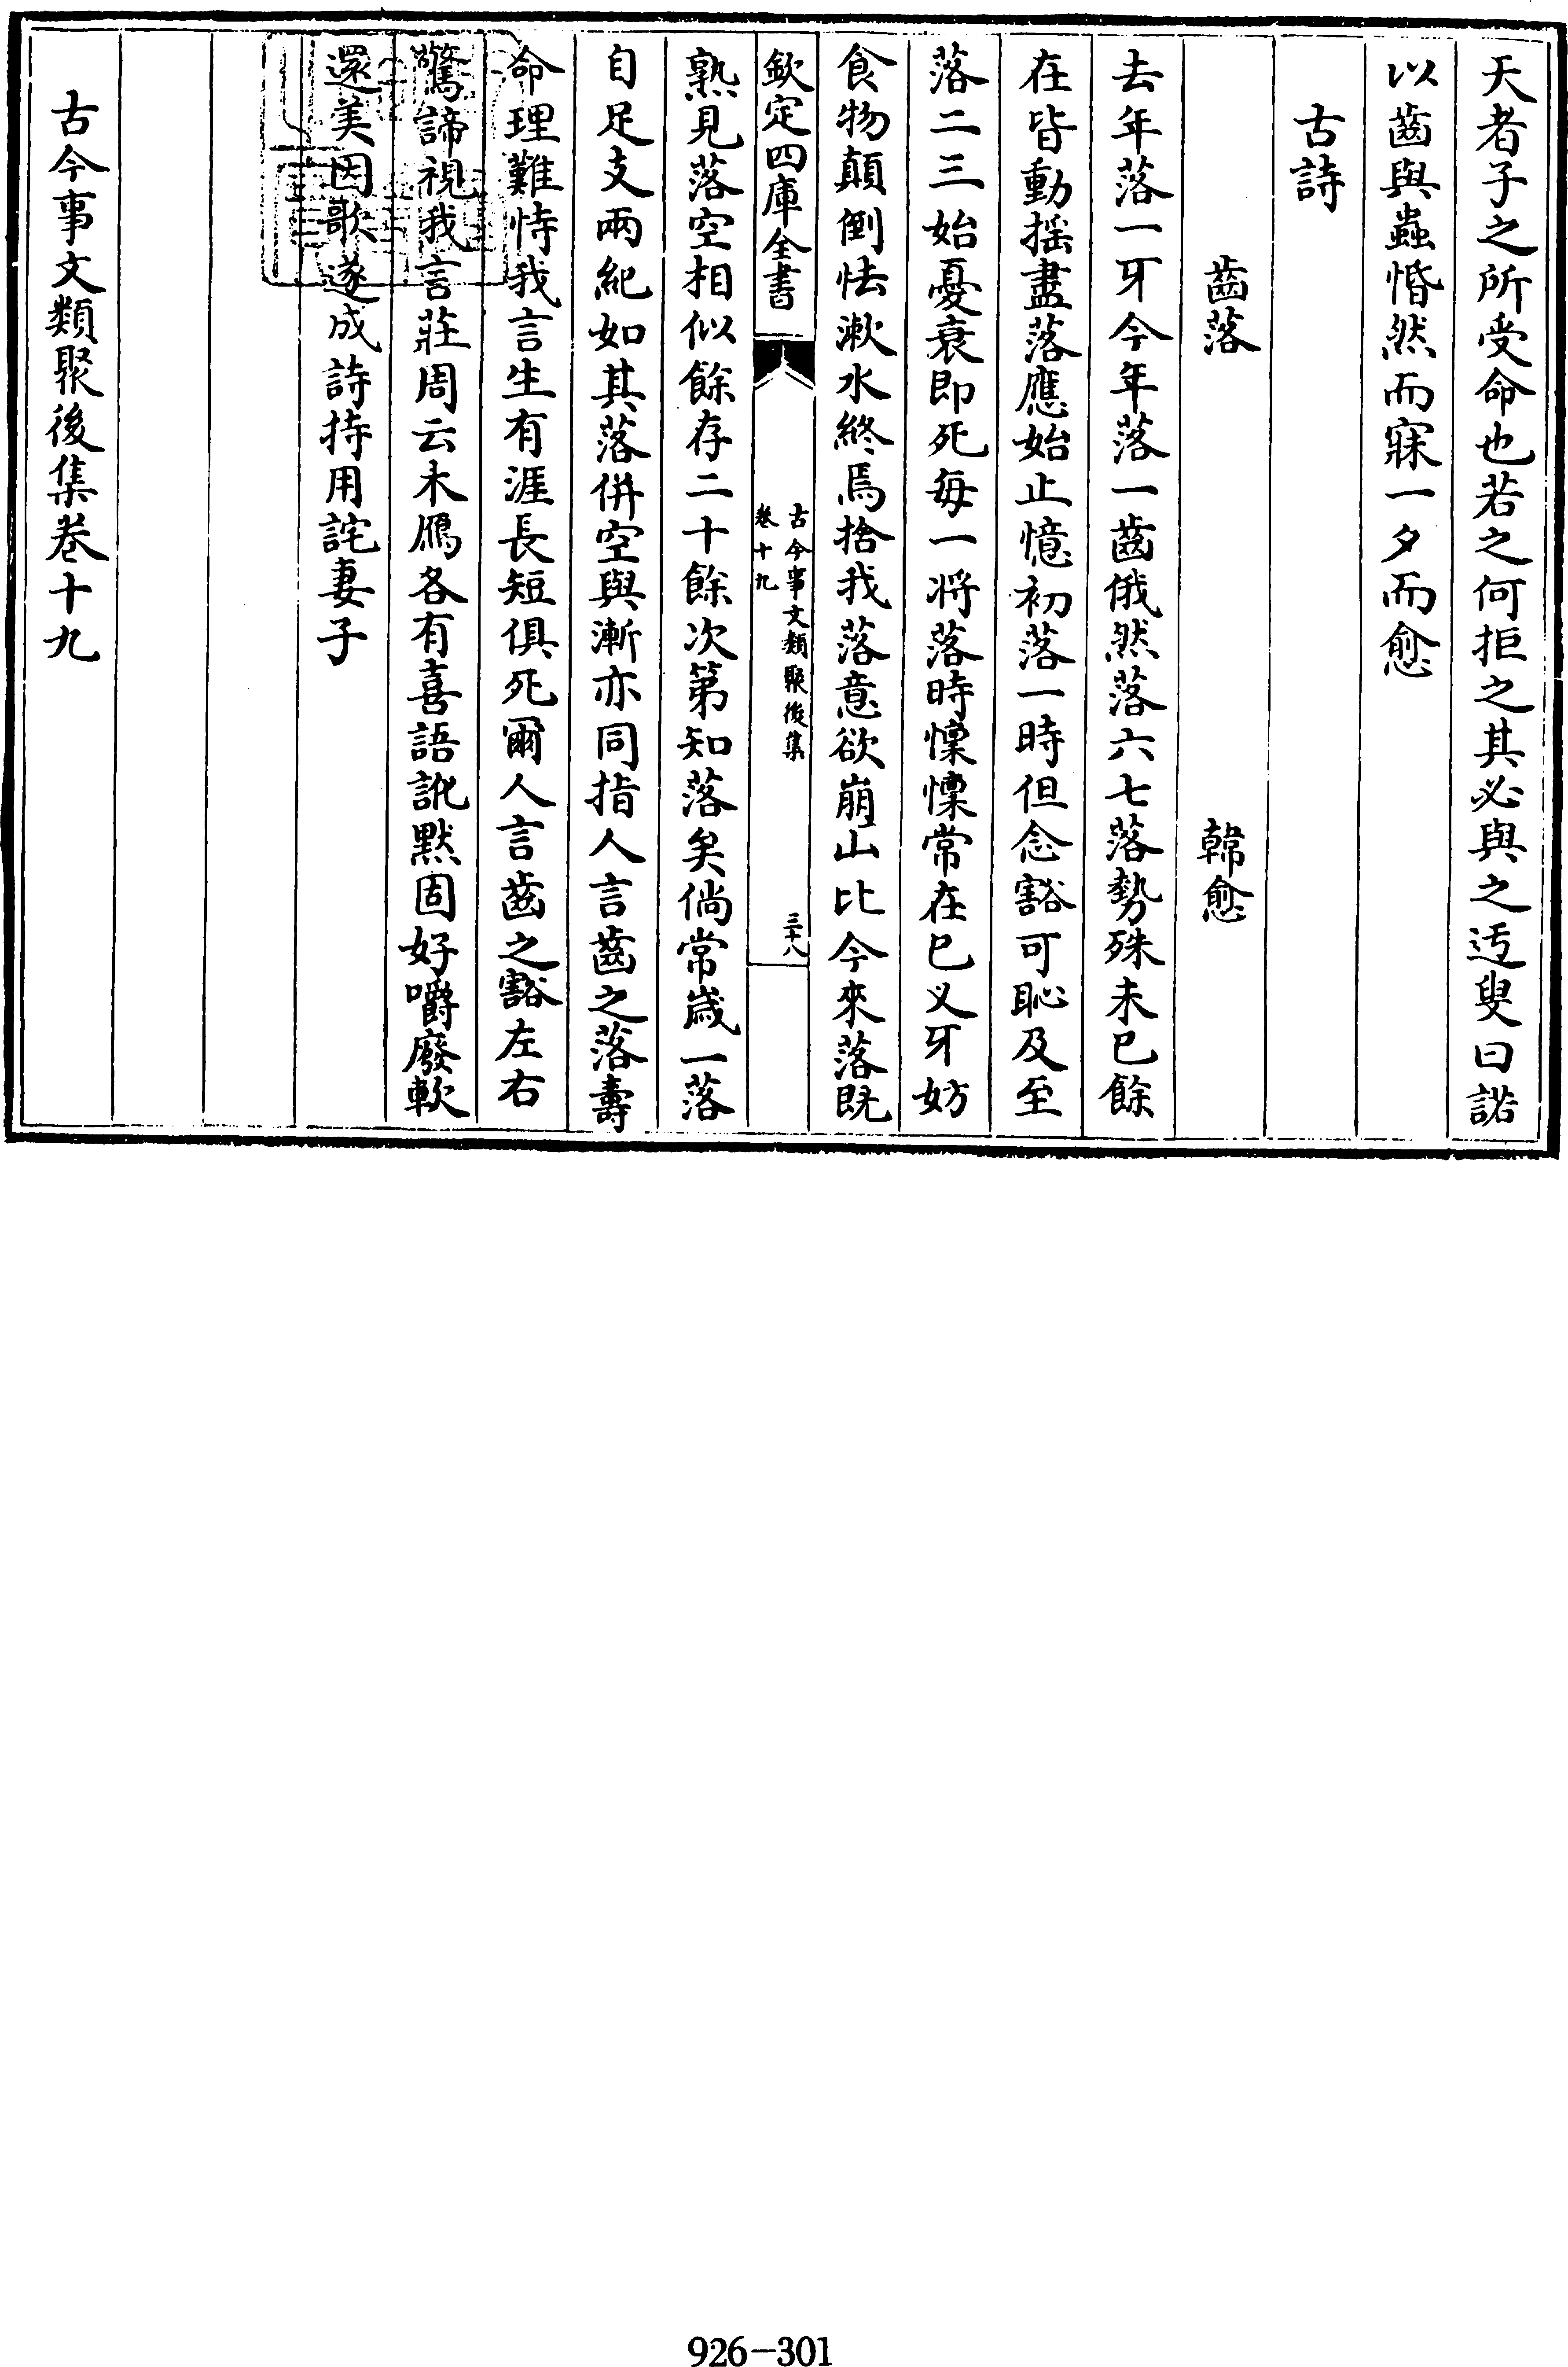 天者子之所受命也若之何拒之其必與之迃叟曰諾
以齒與蟲惛然而寐一夕而愈
古詩
齒落　韓愈
去年落一牙今年落一齒俄然落六七落勢殊未已餘
在皆動揺盡落應始止憶初落一時但念豁可恥及至
落二三始憂衰即死每一將落時懔懔常在已义牙妨
食物顛倒怯漱水終焉捨我落意欲崩山比今來落既
欽定四庫全書
古今事文類聚後集
卷十九
三十八
熟見落空相似餘存二十餘次第知落矣倘常歳一落
自足支兩紀如其落併空與漸亦同指人言齒之落壽
命理難恃我言生有涯長短俱死爾人言齒之豁左右
驚諦視我言莊周云木鴈各有喜語訛黙固好嚼廢軟
還美因歌遂成詩持用詫妻子
古今事文類聚後集卷十九
926-301